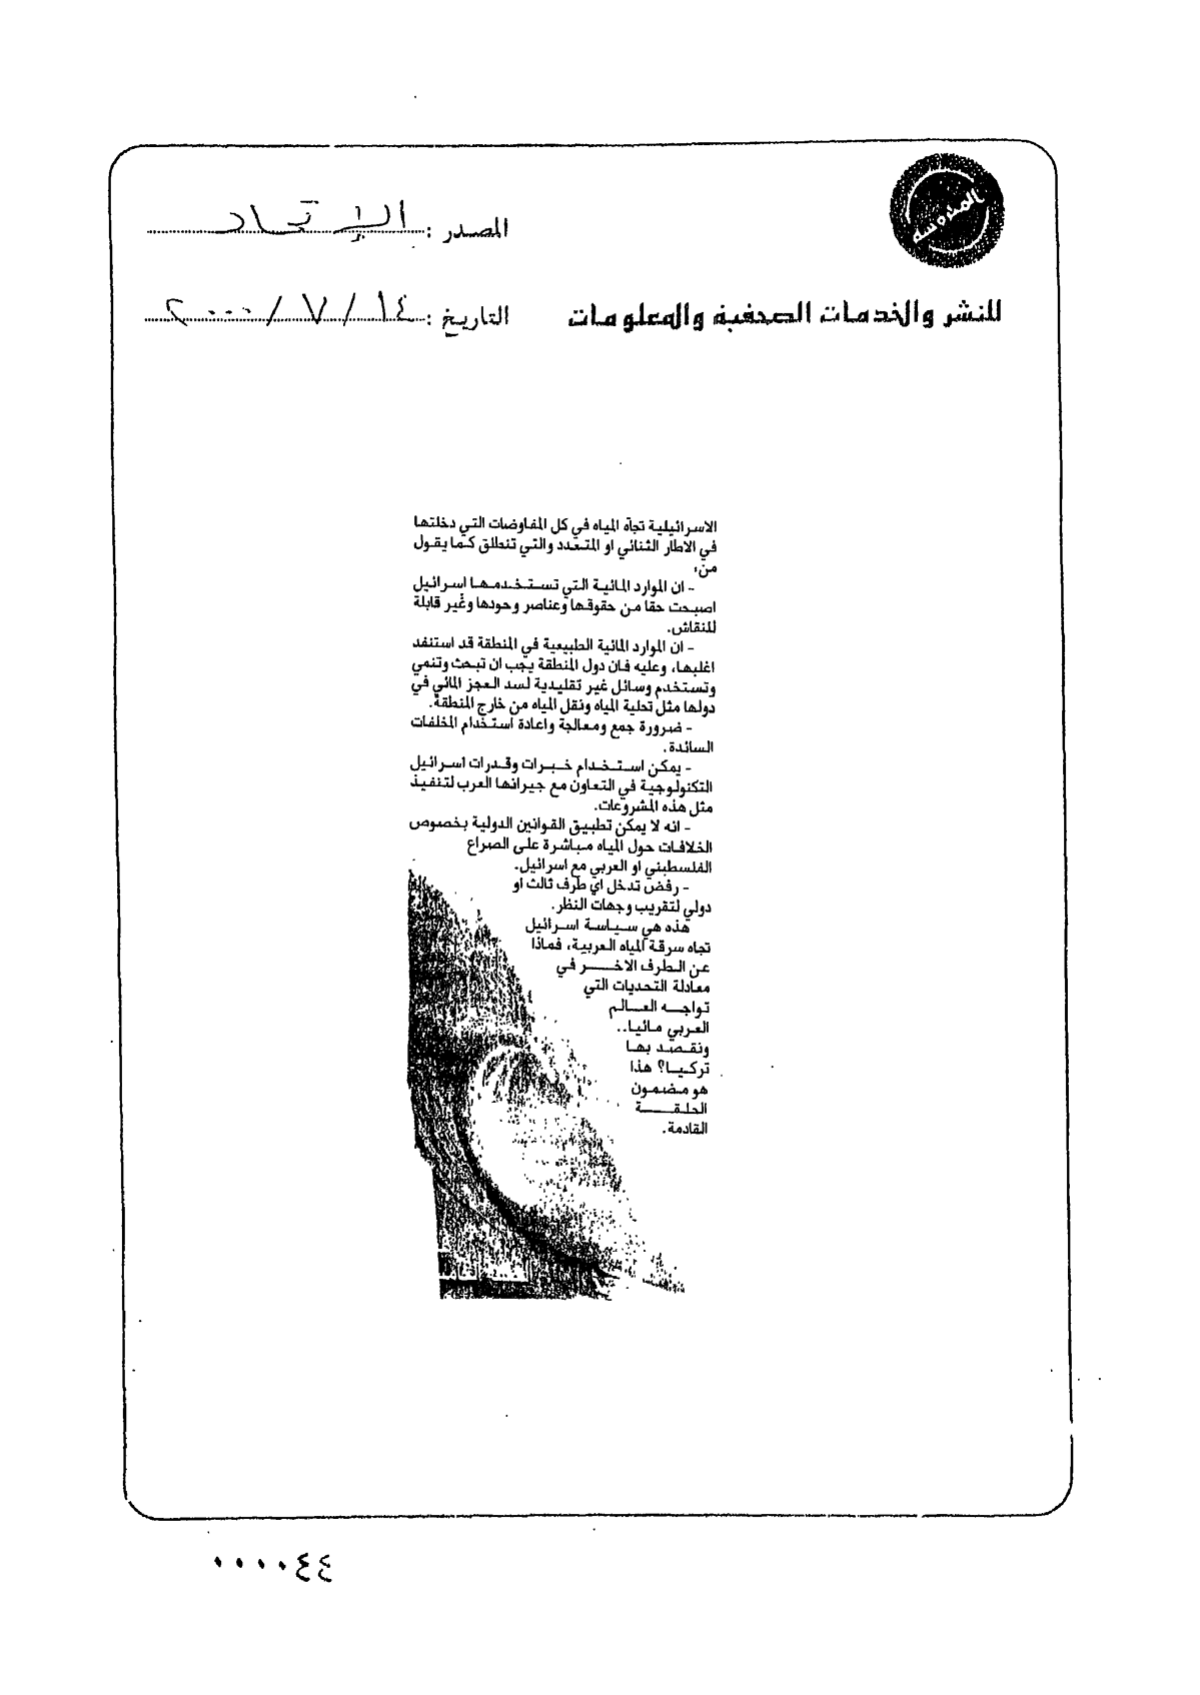 المصدر : الإتحاد
للنشر والخدمات الصحفية والمعلومات
التاريخ : ١٤ / ٧ / ٢٠٠٠
الاسرائيلية تجاه المياه في كل المفاوضات التي دخلتها
في الاطار الثنائي او المتعدد والتي تنطلق كما يقول
من:
- ان الموارد المائية التي تستخدمها اسرائيل
اصبحت حقا من حقوقها وعناصر وجودها وغير قابلة
للنقاش.
- ان الموارد المائية الطبيعية في المنطقة قد استنفد
اغلبها، وعليه فان دول المنطقة يجب ان تبحث وتنمي
وتستخدم وسائل غير تقليدية لسد العجز المائي في
دولها مثل تحلية المياه ونقل المياه من خارج المنطقة.
- ضرورة جمع ومعالجة واعادة استخدام المخلفات
السائدة.
- يمكن استخدام خبرات وقدرات اسرائيل
التكنولوجية في التعاون مع جيرانها العرب لتنفيذ
مثل هذه المشروعات.
- انه لا يمكن تطبيق القوانين الدولية بخصوص
الخلافات حول المياه مباشرة على الصراع
الفلسطيني او العربي مع اسرائيل.
- رفض تدخل اي طرف ثالث او
دولي لتقريب وجهات النظر.
هذه هي سياسة اسرائيل
تجاه سرقة المياه العربية، فماذا
عن الطرف الاخر في
معادلة التحديات التي
تواجه العالم
العربي مائيا..
ونقصد بها
تركيا؟ هذا
هو مضمون
الحلقة
القادمة.
٠٠٠٠٤٤